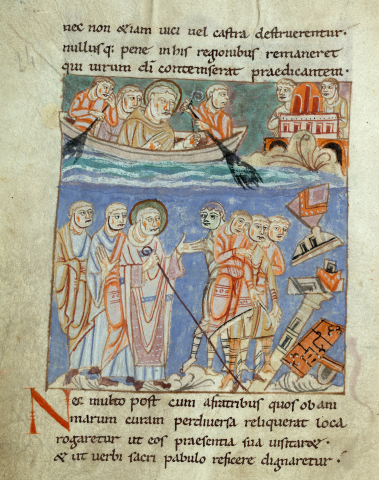 nec non &iam uici uel castra destruerentur·
nullusq; pene in his regionibus remaneret
qui uirum di contemserat praedicantem·
Nec multo post cum afratribus quos ob ani
marum curam perdiuersa reliquerat loca
rogaretur ut eos praesentia sua uisitar&·
& ut uerbi sacri pabulo reficere dignaretur·